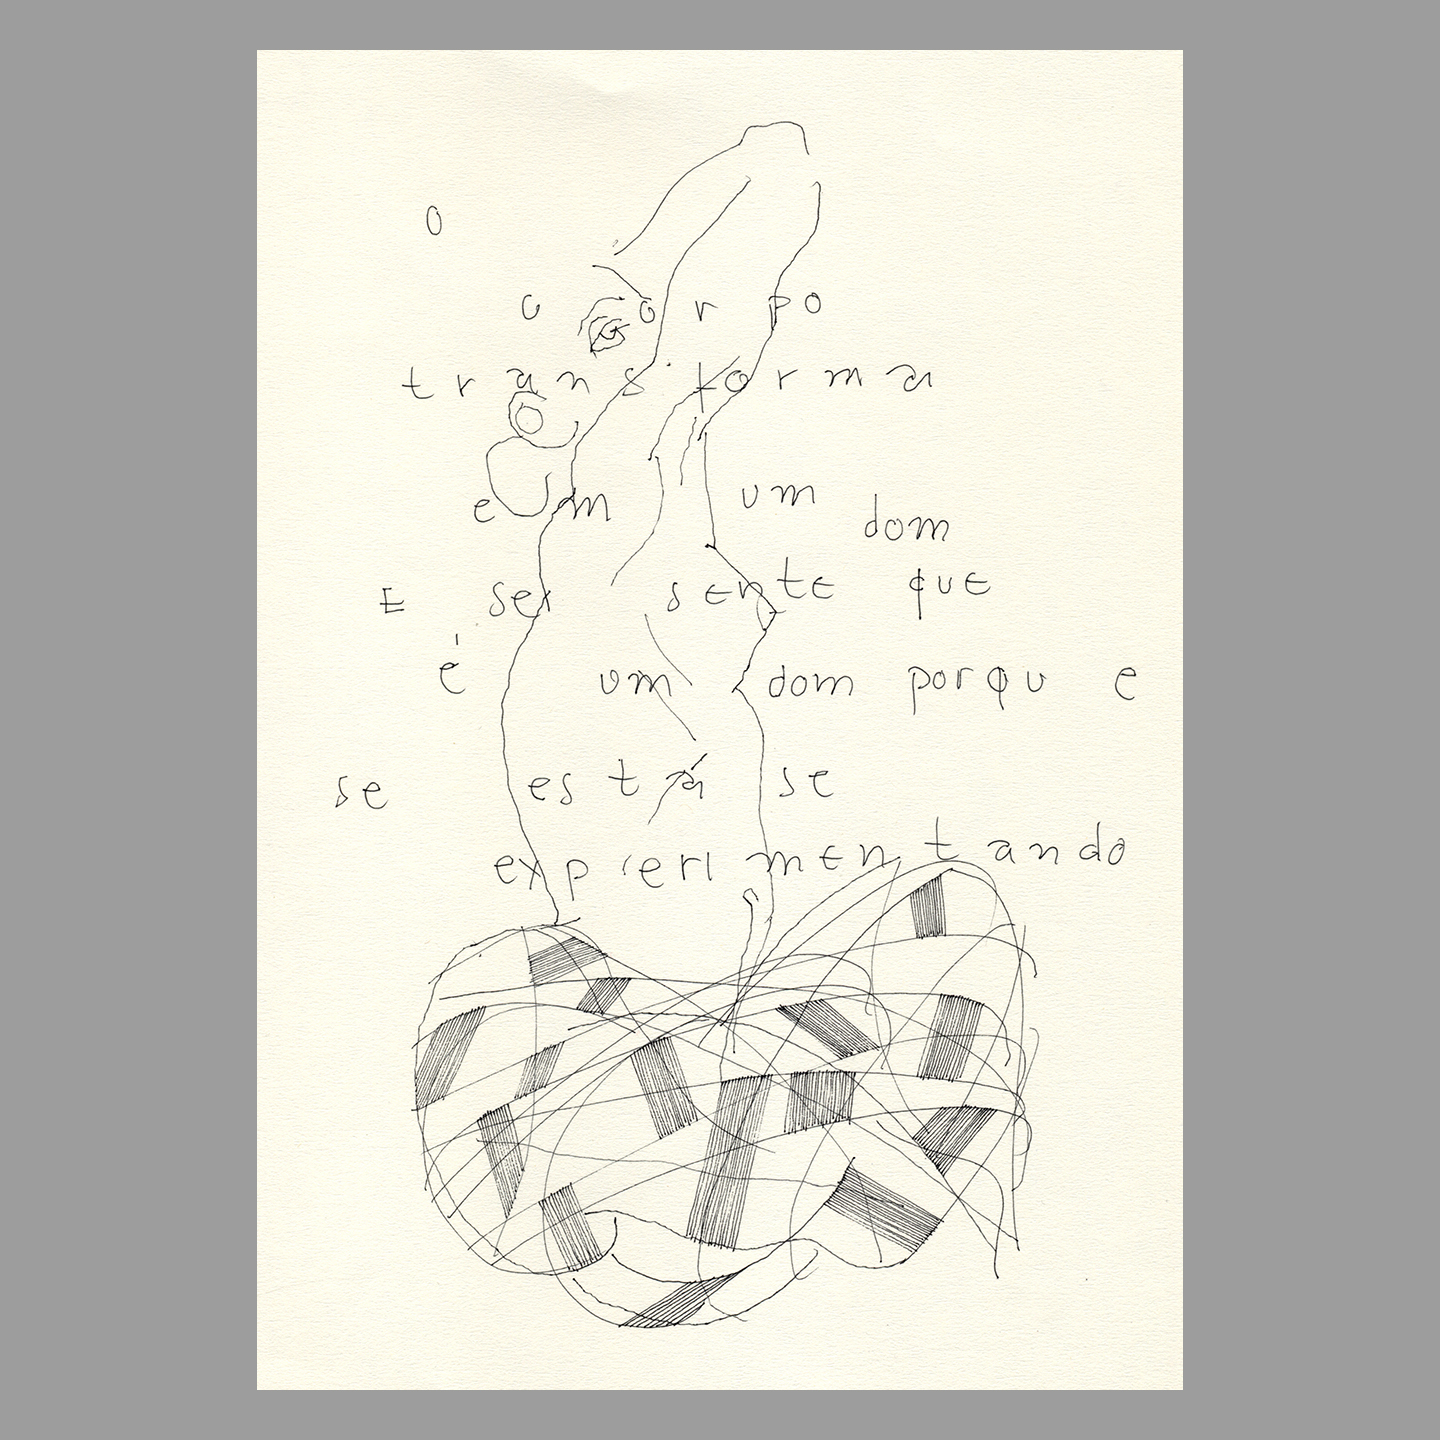 o
corpo
transforma
em um
dom
E se sente que
é um dom porque
se está se
experimentando